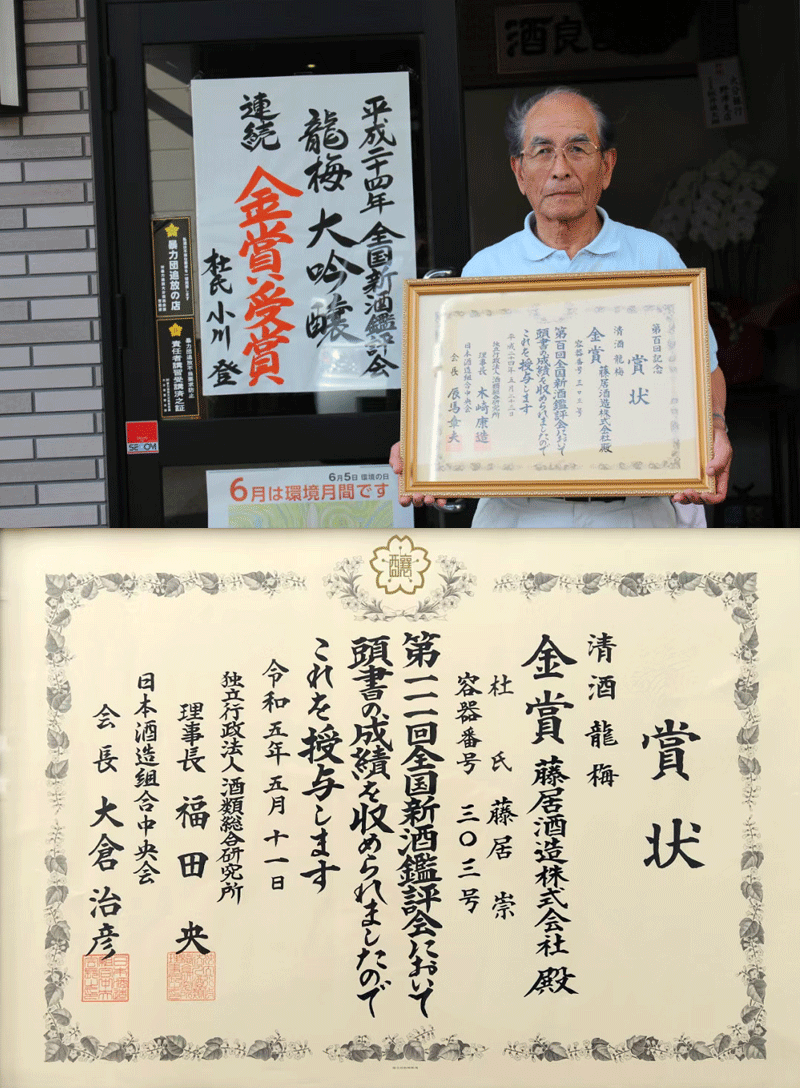 平成二十四年 全国新酒鑑評会
龍梅 大吟醸
連続 金賞受賞
杜氏 小川 登
暴力団追放の店
責任者講習受講済之証
SECOM
6月5日 環境の日
6月は環境月間です
第百回記念
賞状
清酒 龍梅
金賞 藤居酒造株式会社殿
第百回全国新酒鑑評会において
頭書の成績を収められましたので
これを授与します
平成二十四年五月二十三日
独立行政法人酒類総合研究所
理事長 木崎康造
日本酒造組合中央会
会長 辰馬章夫
醸
賞状
清酒 龍梅
金賞 藤居酒造株式会社 殿
杜氏 藤居 崇
容器番号 三〇三号
第一一一回全国新酒鑑評会において
頭書の成績を収められましたので
これを授与します
令和五年五月十一日
独立行政法人酒類総合研究所
理事長 福田 央
日本酒造組合中央会
会長 大倉治彦